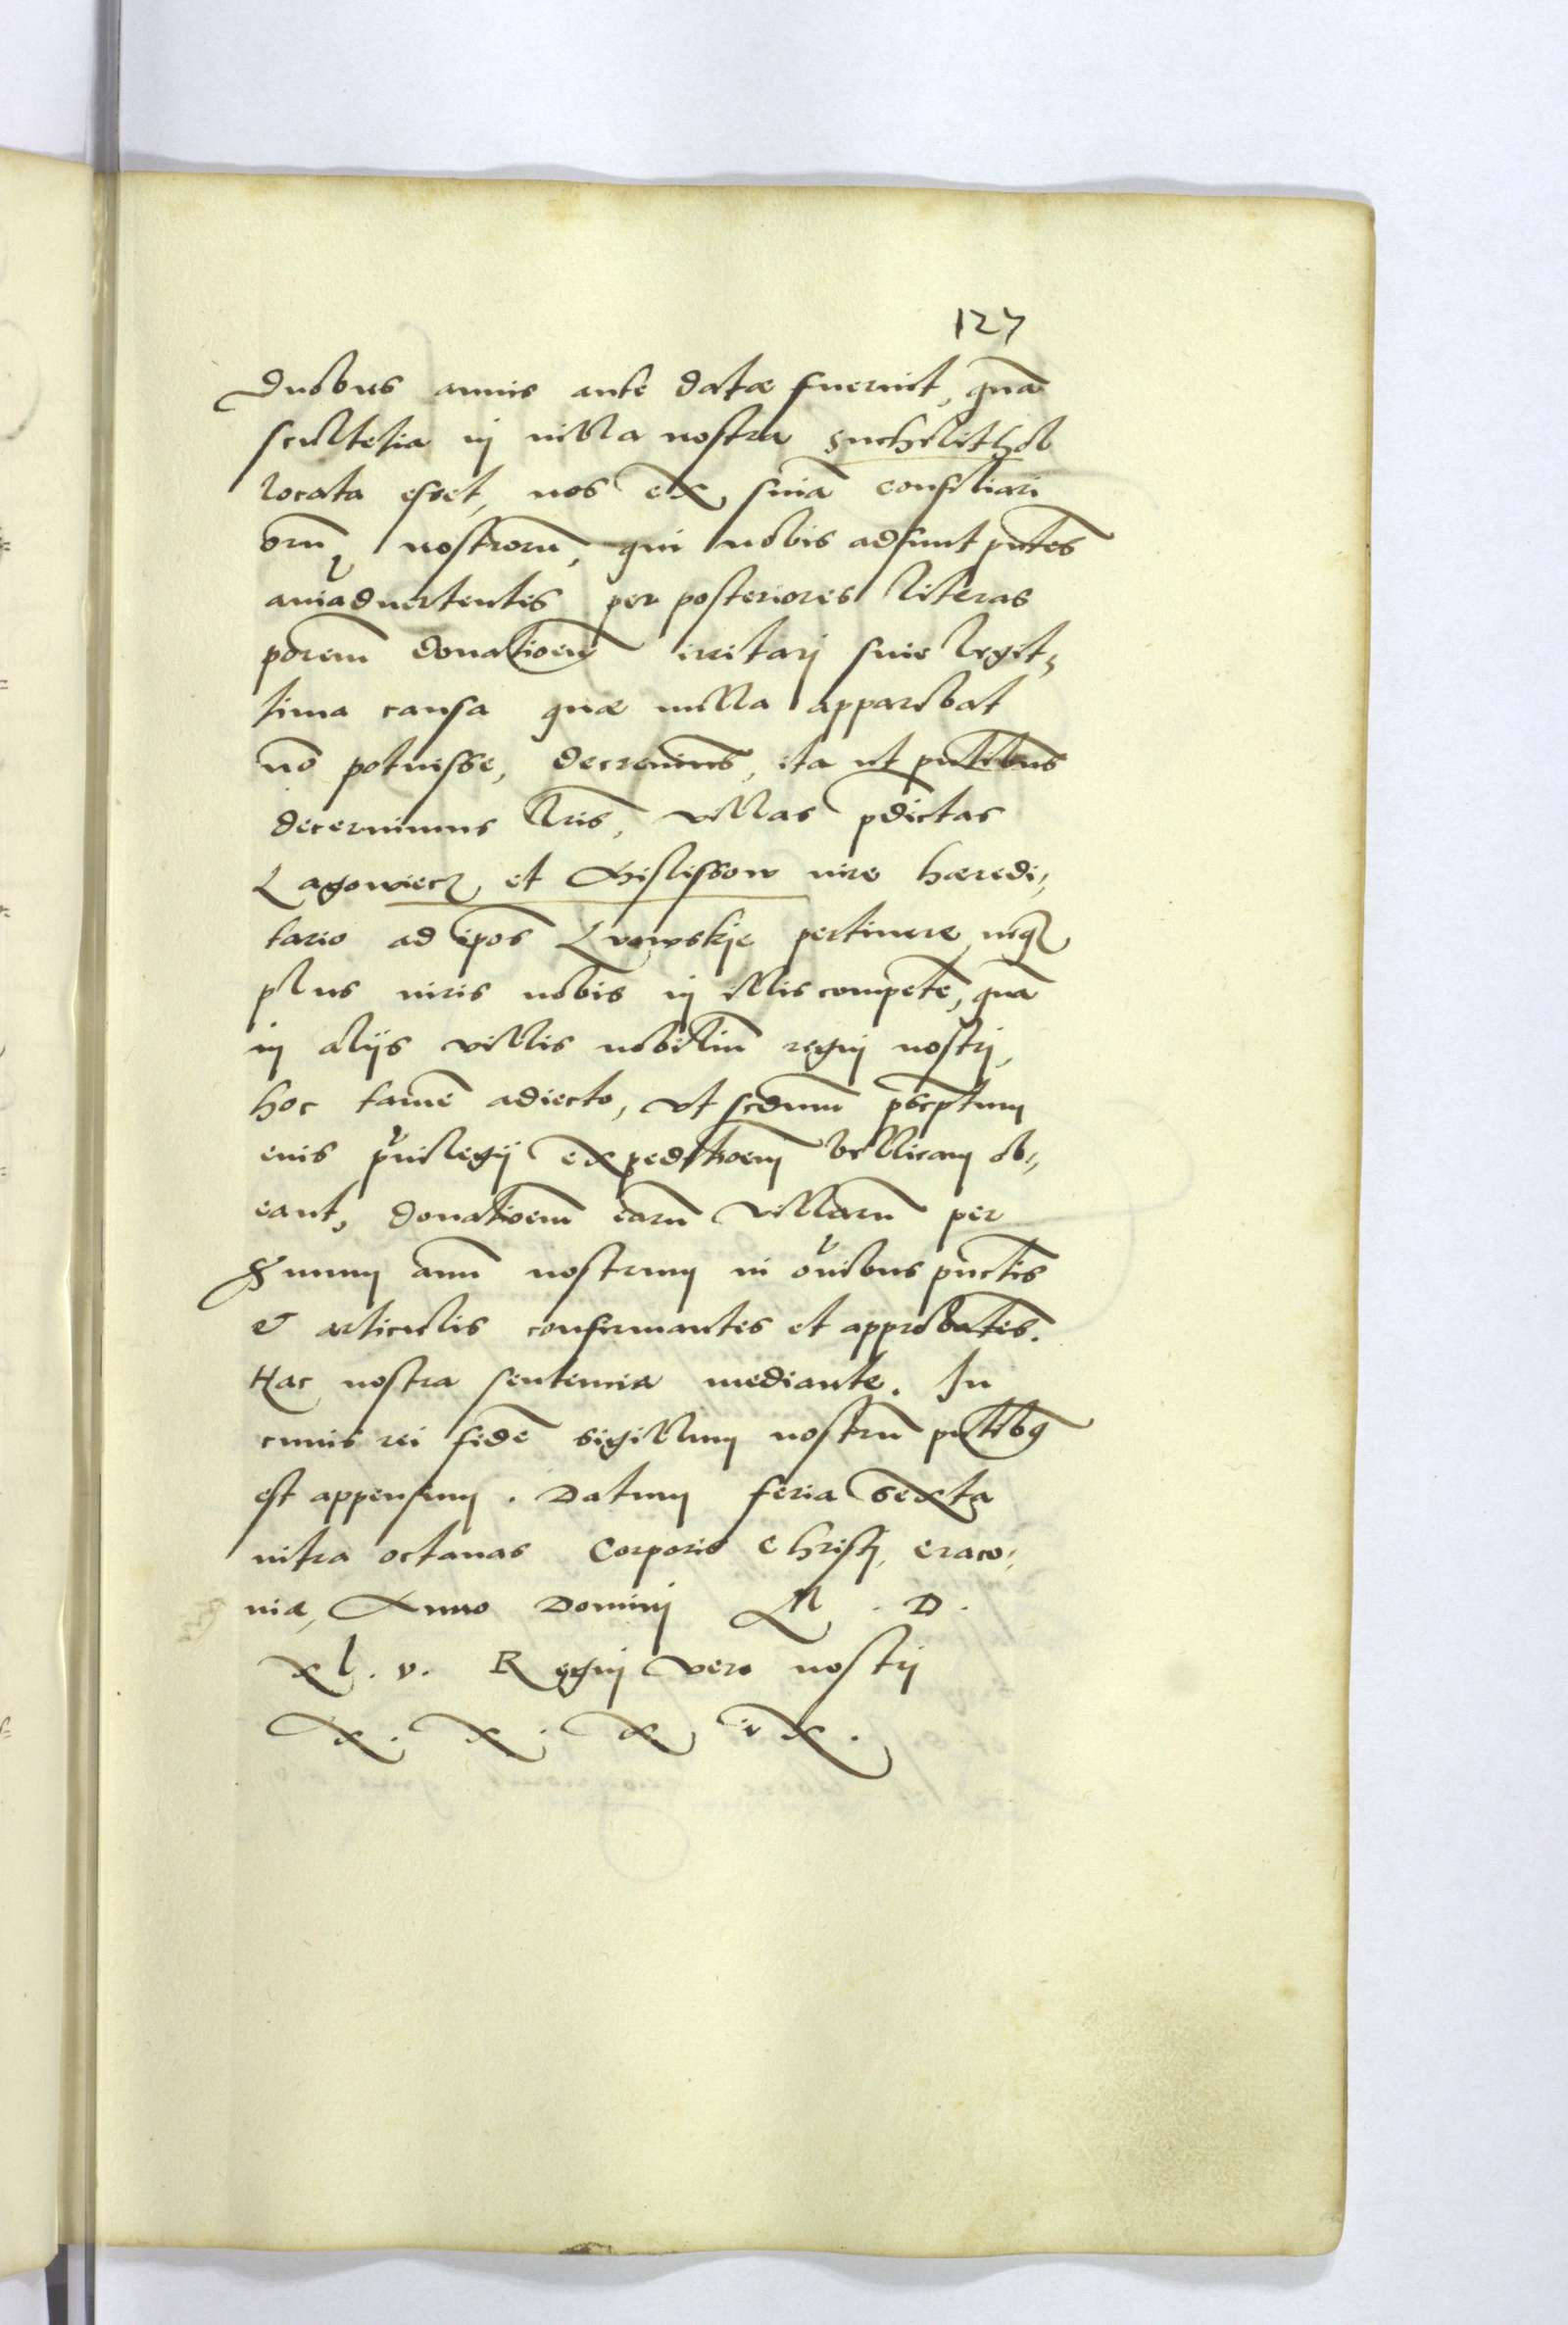 127
duobus annis ante datæ fuerint, quā
scultetia in villa nostra Suchelithob
locata esset, nos ex suīa consiliari
orū nostrorū, qui nobis adsunt pn̄tes
aīaduertentes per posteriores literas
porem̄ donatioem̄ irritari sine legit,
tima causa quæ nulla apparebat
nō potuisse, decreuim̄us, ita ut pn̄tibus
decernimus lr̄is, villas p̄dictas
Lagowiecz et Gislissow iure hæredi,,
tario ad ip̄os Lvowskie pertinere, neq
plus iuris nobis in illis competē̄, quā
in alijs villis nobiliū regni nostri,
hoc tamē adiecto, vt scdum̄ p̄scptum
eius priuilegij expeditioem̄ bellicam ob,,
eant, donatioem̄ earū villarū per
auum nostrum in oībus punctis
& articulis confirmantes et approbātes.
Hac nostra sententia mediante. In
cuius rei fidē sigillum nostrū pn̄tibq
est appensum. Datum feria sexta
intra octauas Corporis Christi, Craco,,
uiæ, Anno Domini M . D .
xl . v . Regni vero nostri
x . x . x ix .